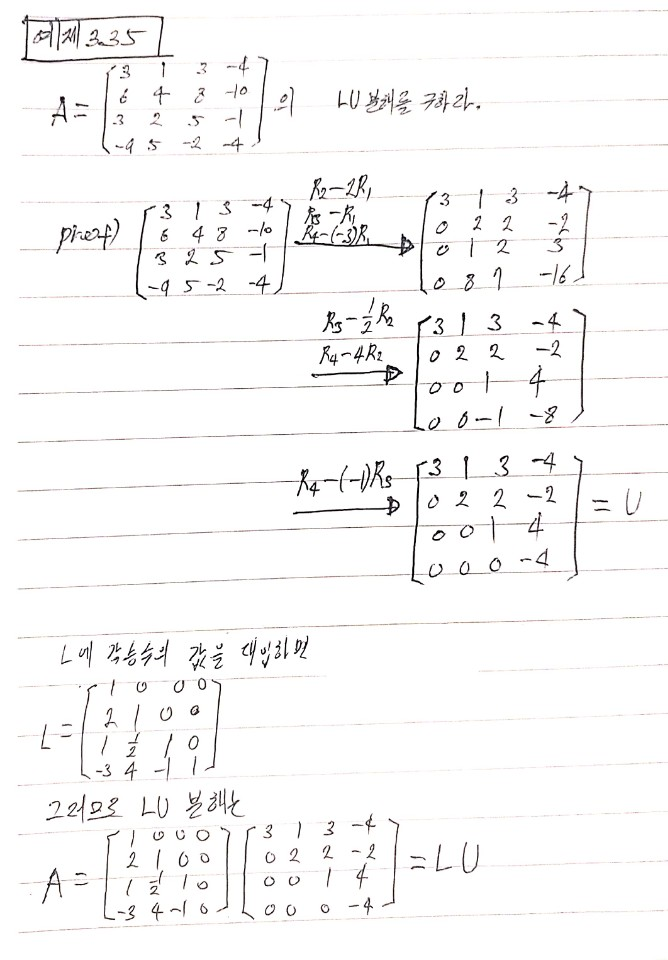 예제 3.35
A = [3 1 3 -4; 6 4 8 -10; 3 2 5 -1; -9 5 -2 -4] 의 LU 분해를 구하라.
proof) [3 1 3 -4; 6 4 8 -10; 3 2 5 -1; -9 5 -2 -4] R2-2R1 R3-R1 R4-(-3)R1 → [3 1 3 -4; 0 2 2 -2; 0 1 2 3; 0 8 7 -16]
R3-1/2R2 R4-4R2 → [3 1 3 -4; 0 2 2 -2; 0 0 1 4; 0 0 -1 -8]
R4-(-1)R3 → [3 1 3 -4; 0 2 2 -2; 0 0 1 4; 0 0 0 -4] = U
L에 각승수의 값을 대입하면
L = [1 0 0 0; 2 1 0 0; 1 1/2 1 0; -3 4 -1 1]
그러므로 LU 분해는
A = [1 0 0 0; 2 1 0 0; 1 1/2 1 0; -3 4 -1 0] [3 1 3 -4; 0 2 2 -2; 0 0 1 4; 0 0 0 -4] = LU